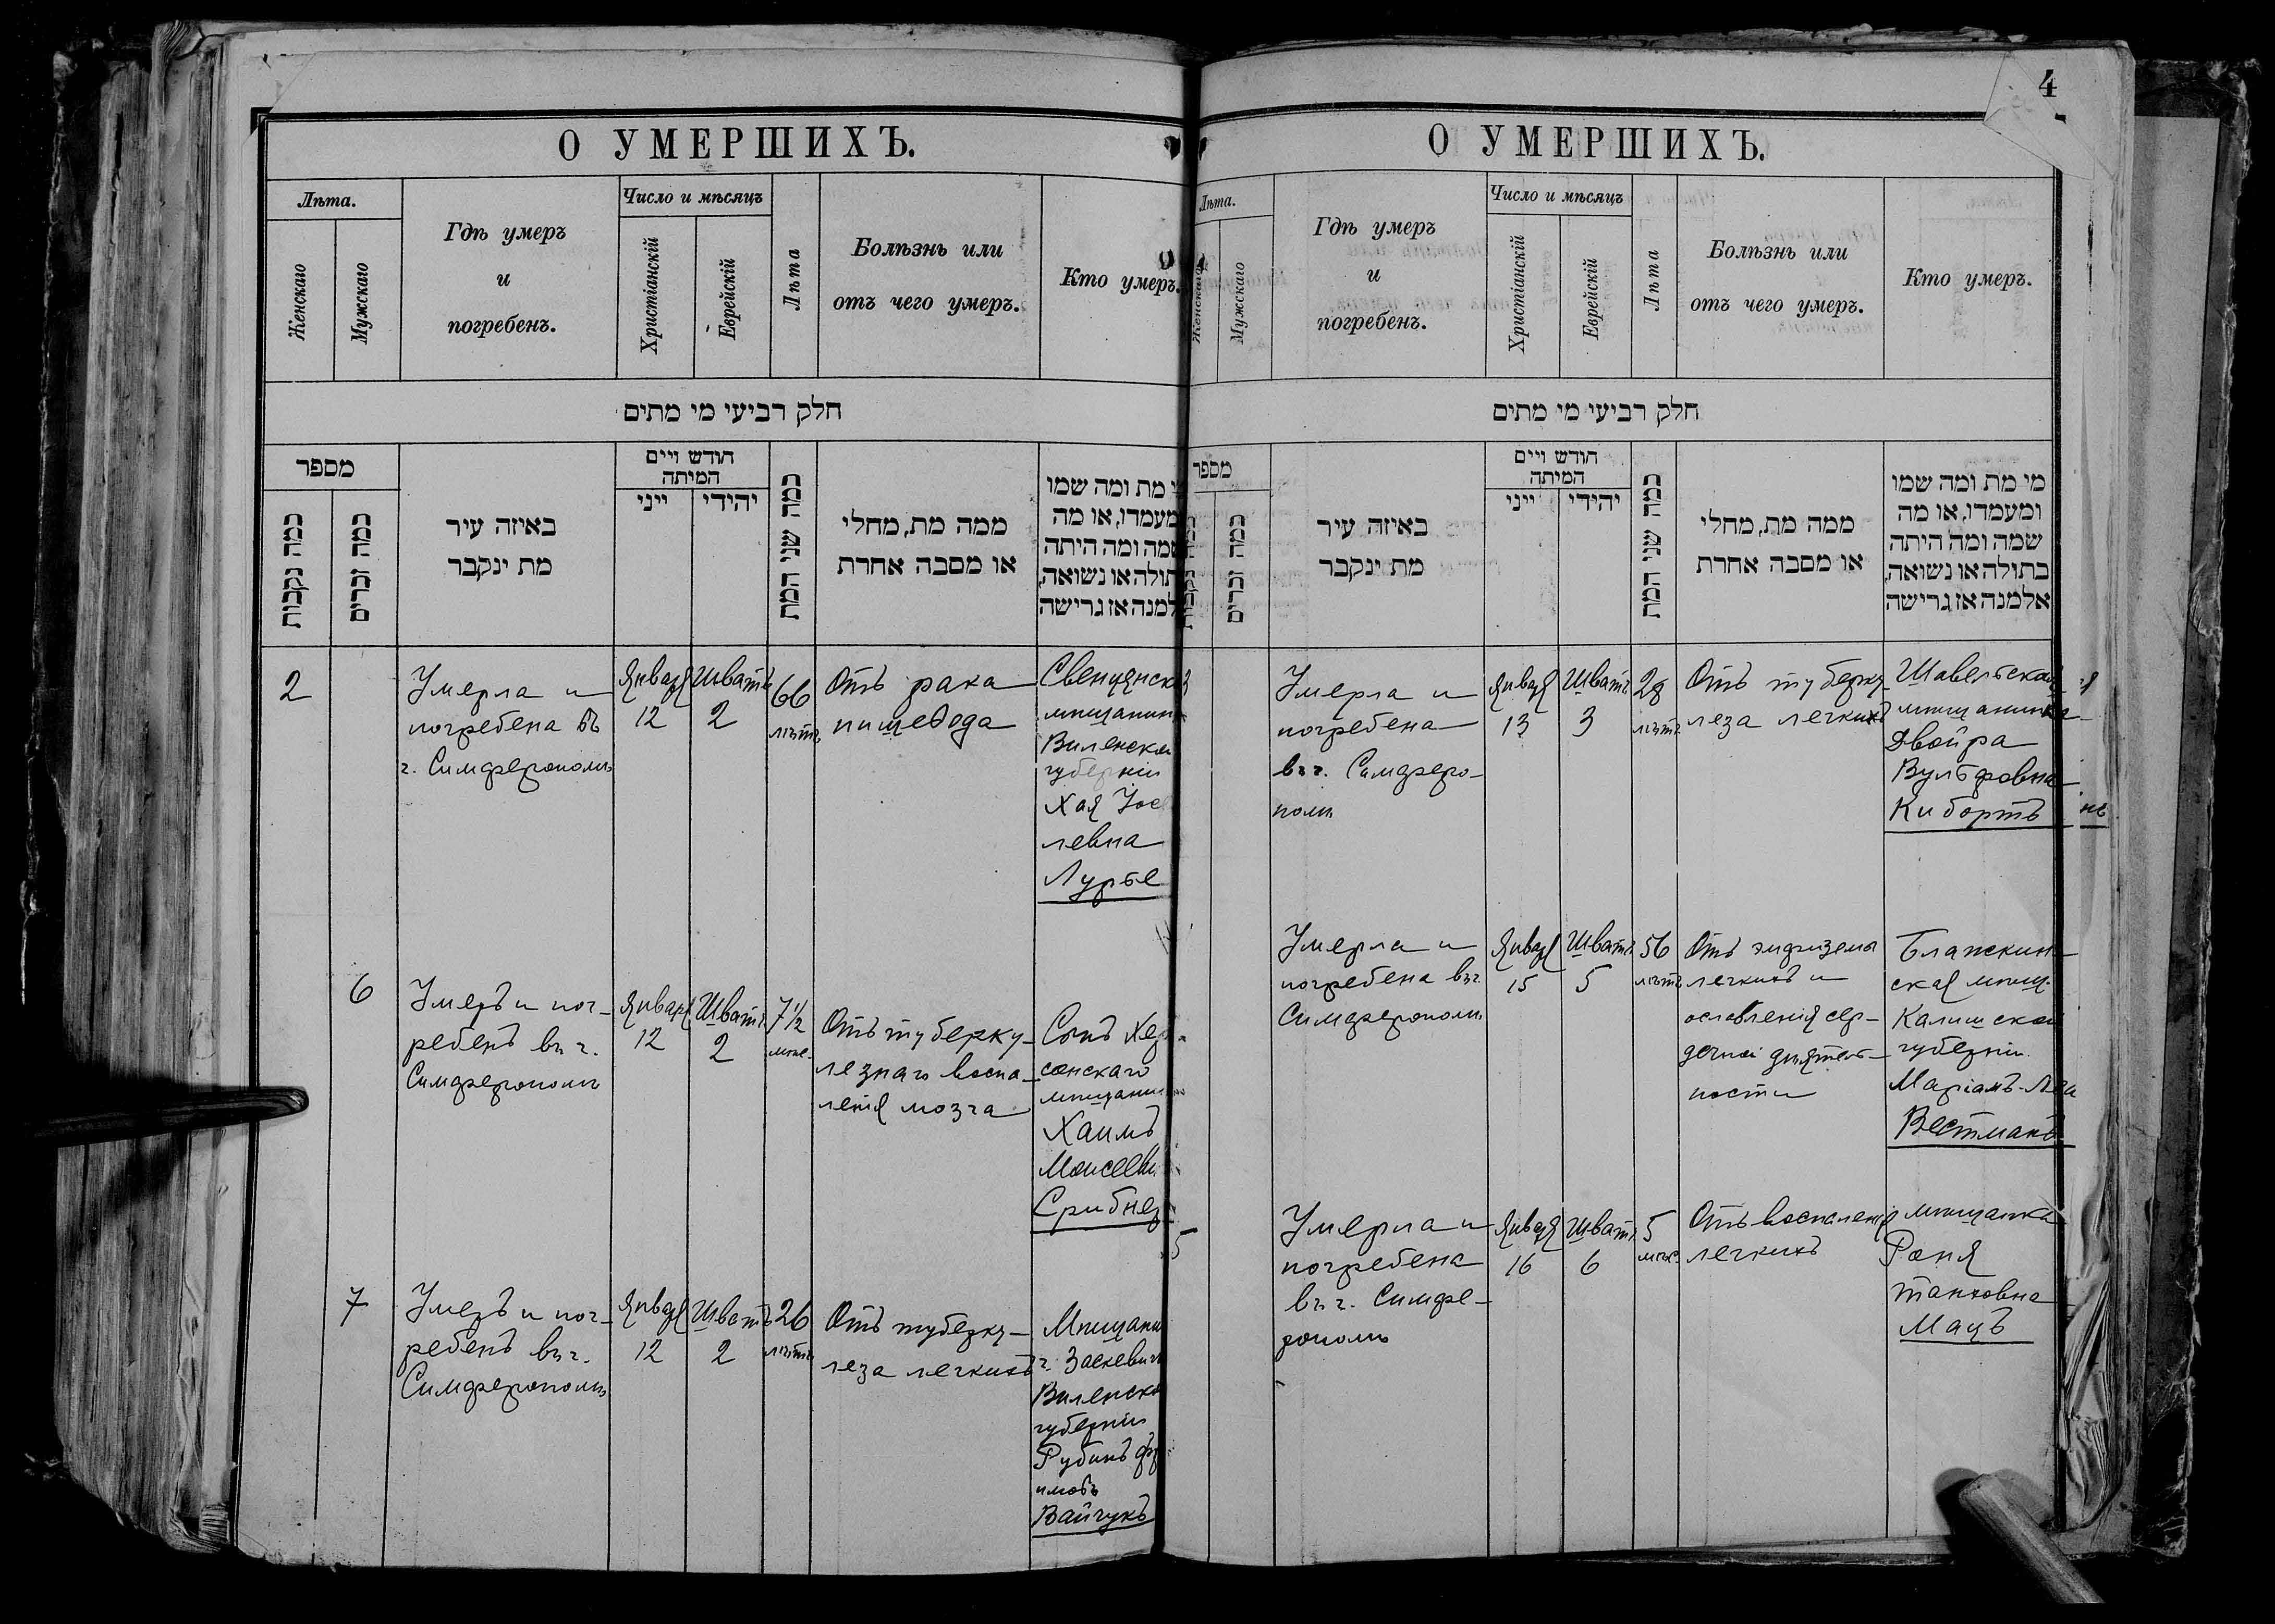 О УМЕРШИХЪ.
Лѣта.
Женскаго
Мужскаго
Гдѣ умеръ
и
погребенъ.
Число и мѣсяцъ
Христіанскій
Еврейскій
Лѣта
Болѣзнь или
отъ чего умеръ.
Кто умеръ.
חלק רביעי מי מתים
מספר
כמה נקבות
כמה זכרים
באיזה עיר
מת ינקבר
חודש ויים
המיתה
ייני
יהידי
כמה שני המת
ממה מת, מחלי
או מסבה אחרת
מת ומה שמו
מעמדו, או מה
שמה ומה היתה
תולה או נשואה,
למנה אז גרישה
2
Умерла и
погребена въ
г. Симферополѣ
Январ
12
Шватъ
2
66
лѣтъ
Отъ рака
пищевода
Свенцянск
мѣщанин
Виленско
губерніи
Хая Іос
левна
Лурье
6
Умеръ и пог-
ребенъ въ г.
Симферополѣ
Январ
12
Шватъ
2
7½
мѣс.
Отъ туберку-
лезнаго воспа-
ленія мозга
Сынъ Хер
сонскаго
мѣщани
Хаимъ
Моисеев
Срибнер
7
Умеръ и пог-
ребенъ въ г.
Симферополѣ
Января
12
Шватъ
2
26
лѣтъ
Отъ туберку-
леза легкихъ
Мѣщани
г. Заскевич
Виленско
губерніи
Рубинъ Фр
имовъ
Вайчукъ
4
О УМЕРШИХЪ.
Лѣта.
Женскаго
Мужскаго
Гдѣ умеръ
и
погребенъ.
Число и мѣсяцъ
Христіанскій
Еврейскій
Лѣта
Болѣзнь или
отъ чего умеръ.
Кто умеръ.
חלק רביעי מי מתים
מספר
כמה זכרים
באיזה עיר
מת ינקבר
חודש ויים
המיתה
ייני
יהידי
כמה שני המת
ממה מת, מחלי
או מסבה אחרת
מי מת ומה שמו
ומעמדו, או מה
שמה ומה היתה
בתולה או נשואה,
אלמנה אז גרישה
3
Умерла и
погребена
въ г. Симферо-
полѣ
Января
13
Шватъ
3
28
лѣтъ
Отъ туберку-
леза легкихъ
Шавельская
мѣщанинка
Двойра
Вульфовна
Кибортъ
Умерла и
погребена въ г.
Симферополѣ
Января
15
Шватъ
5
56
лѣтъ
Отъ эмфиземы
легкихъ и
ослабленія сер-
дечной дѣятель-
ности
Блапскин-
ская мѣщ.
Калишской
губерніи
Маріамъ-Леи
Вестманъ
5
Умерла и
погребена
въ г. Симфе-
рополѣ
Января
16
Шватъ
6
5
мѣс.
Отъ воспаленія
легкихъ
мѣщанка
Роня
Танховна
Мацъ